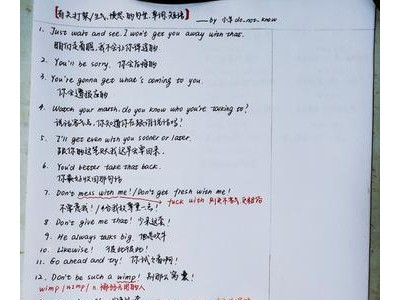 【有关打架/生气、愤怒的句型,单词,短语】 ——by 小羊 do-not-know
1. Just wait and see. I won't get you away with that.
咱们走着瞧,我不会让你得逞的
2. You'll be sorry. 你会后悔的
3. You're gonna get what's coming to you.
你会遭报应的
4. Watch your mouth. do you know who you're talking to?
说话客气点,你知道你在跟谁说话吗!
5. I'll get even with you sooner or later.
跟你的这笔账我迟早会算回来.
6. You'd better take that back.
你最好收回那句话
7. Don't mess with me! /Don't get fresh with me!
不要惹我! /给我放尊重一点!
fuck with
8. Don't give me that! 少来这套!
9. He always talks big. 他总吹牛
10. Likewise! 彼此彼此!
11. Go ahead and try! 你试试看啊!
12. Don't be such a wimp! 别那么窝囊!
wimp /wɪmp/ n